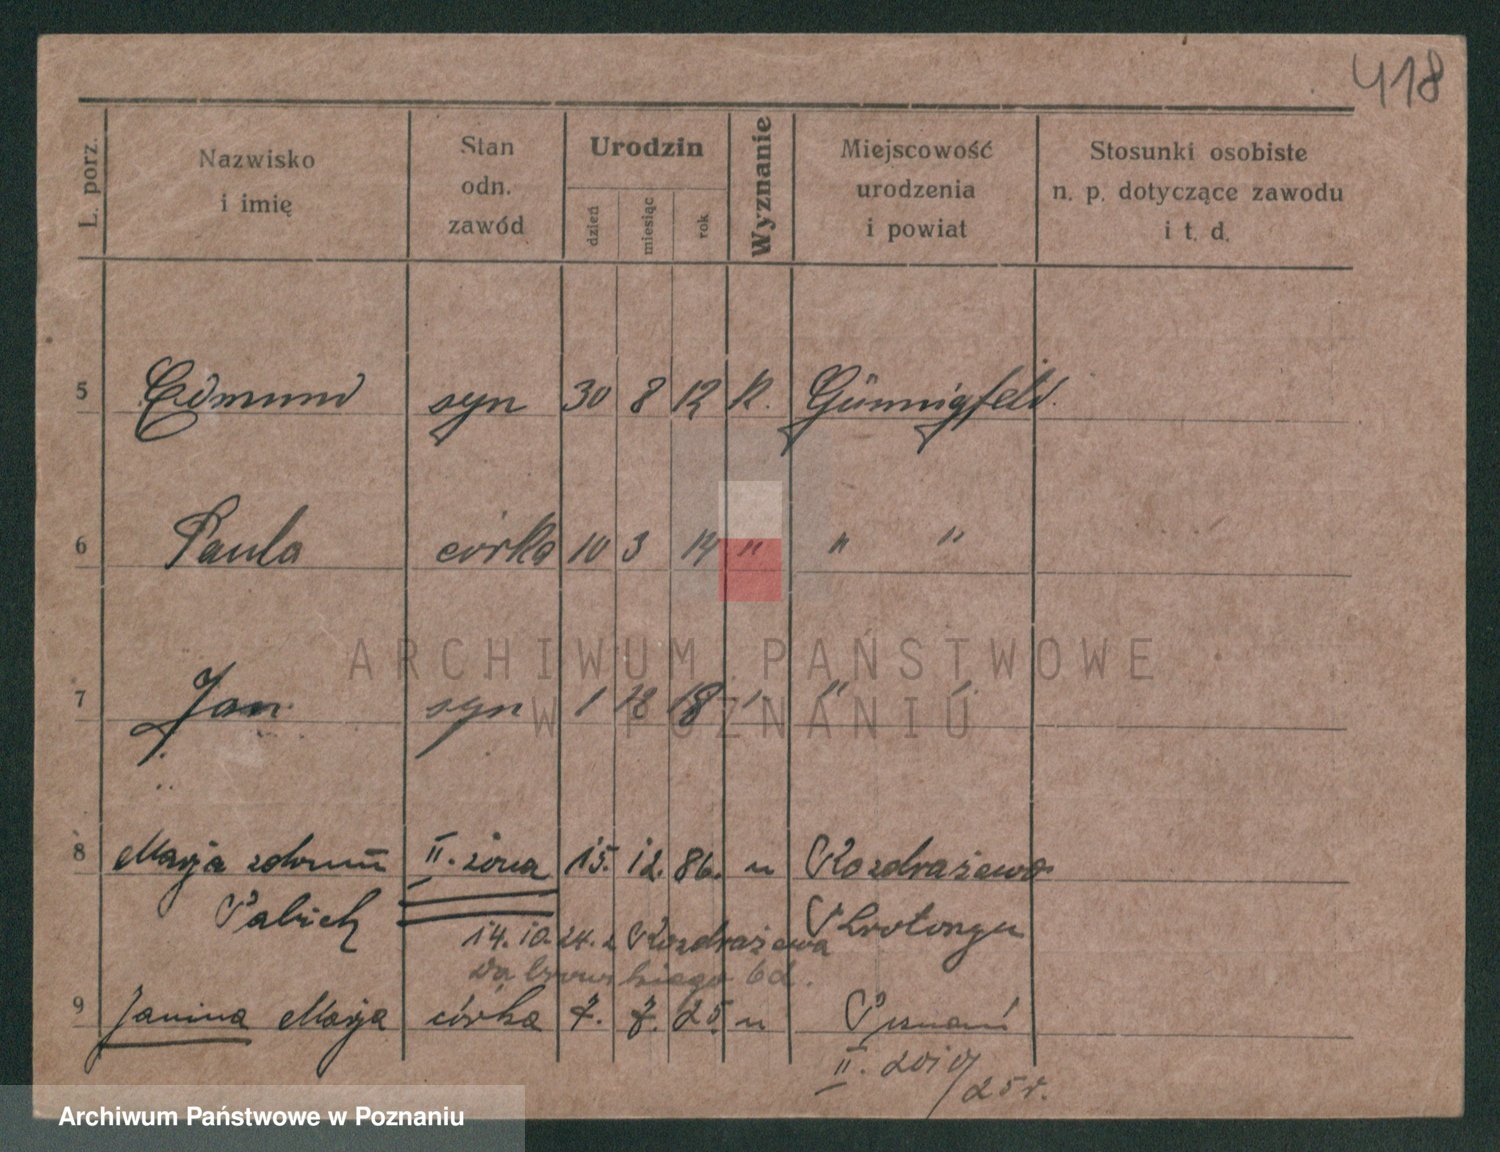 418
L. porz.
Nazwisko i imię
Stan odn. zawód
Urodzin
dzień
miesiąc
rok
Wyznanie
Miejscowość urodzenia i powiat
Stosunki osobiste n. p. dotyczące zawodu i t. d.
5 Edmund syn 30 8 12 k. Günnigfeld.
6 Paula córka 10 3 14 " " "
7 Jan syn 1 18 " "
8 Marja II. żona 15. 12. 86. " Kozdrażewo
14. 10. 24. z Kozdrażewa
Dąbrowskiego 6d.
9 Janina Marja córka 7. 7. 25. " Poznań
II. 2010/25 r.
ARCHIWUM PAŃSTWOWE
W POZNANIU
Archiwum Państwowe w Poznaniu